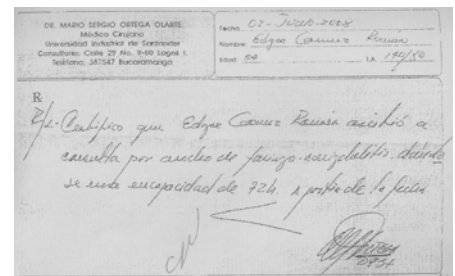 DR. MARIO SERGIO ORTEGA OLARTE
Médico Cirujano
Universidad Industrial de Santander
Consultorio: Calle 29 No. 9-60 Lagos I.
Teléfono: 387547 Bucaramanga
Fecha 02-Julio-2008
Nombre Edgar
Edad 54 T.A. 140/80
R
R/- Certifico que Edgar asistió a
consulta por de
se una incapacidad de 72h. a partir de la fecha